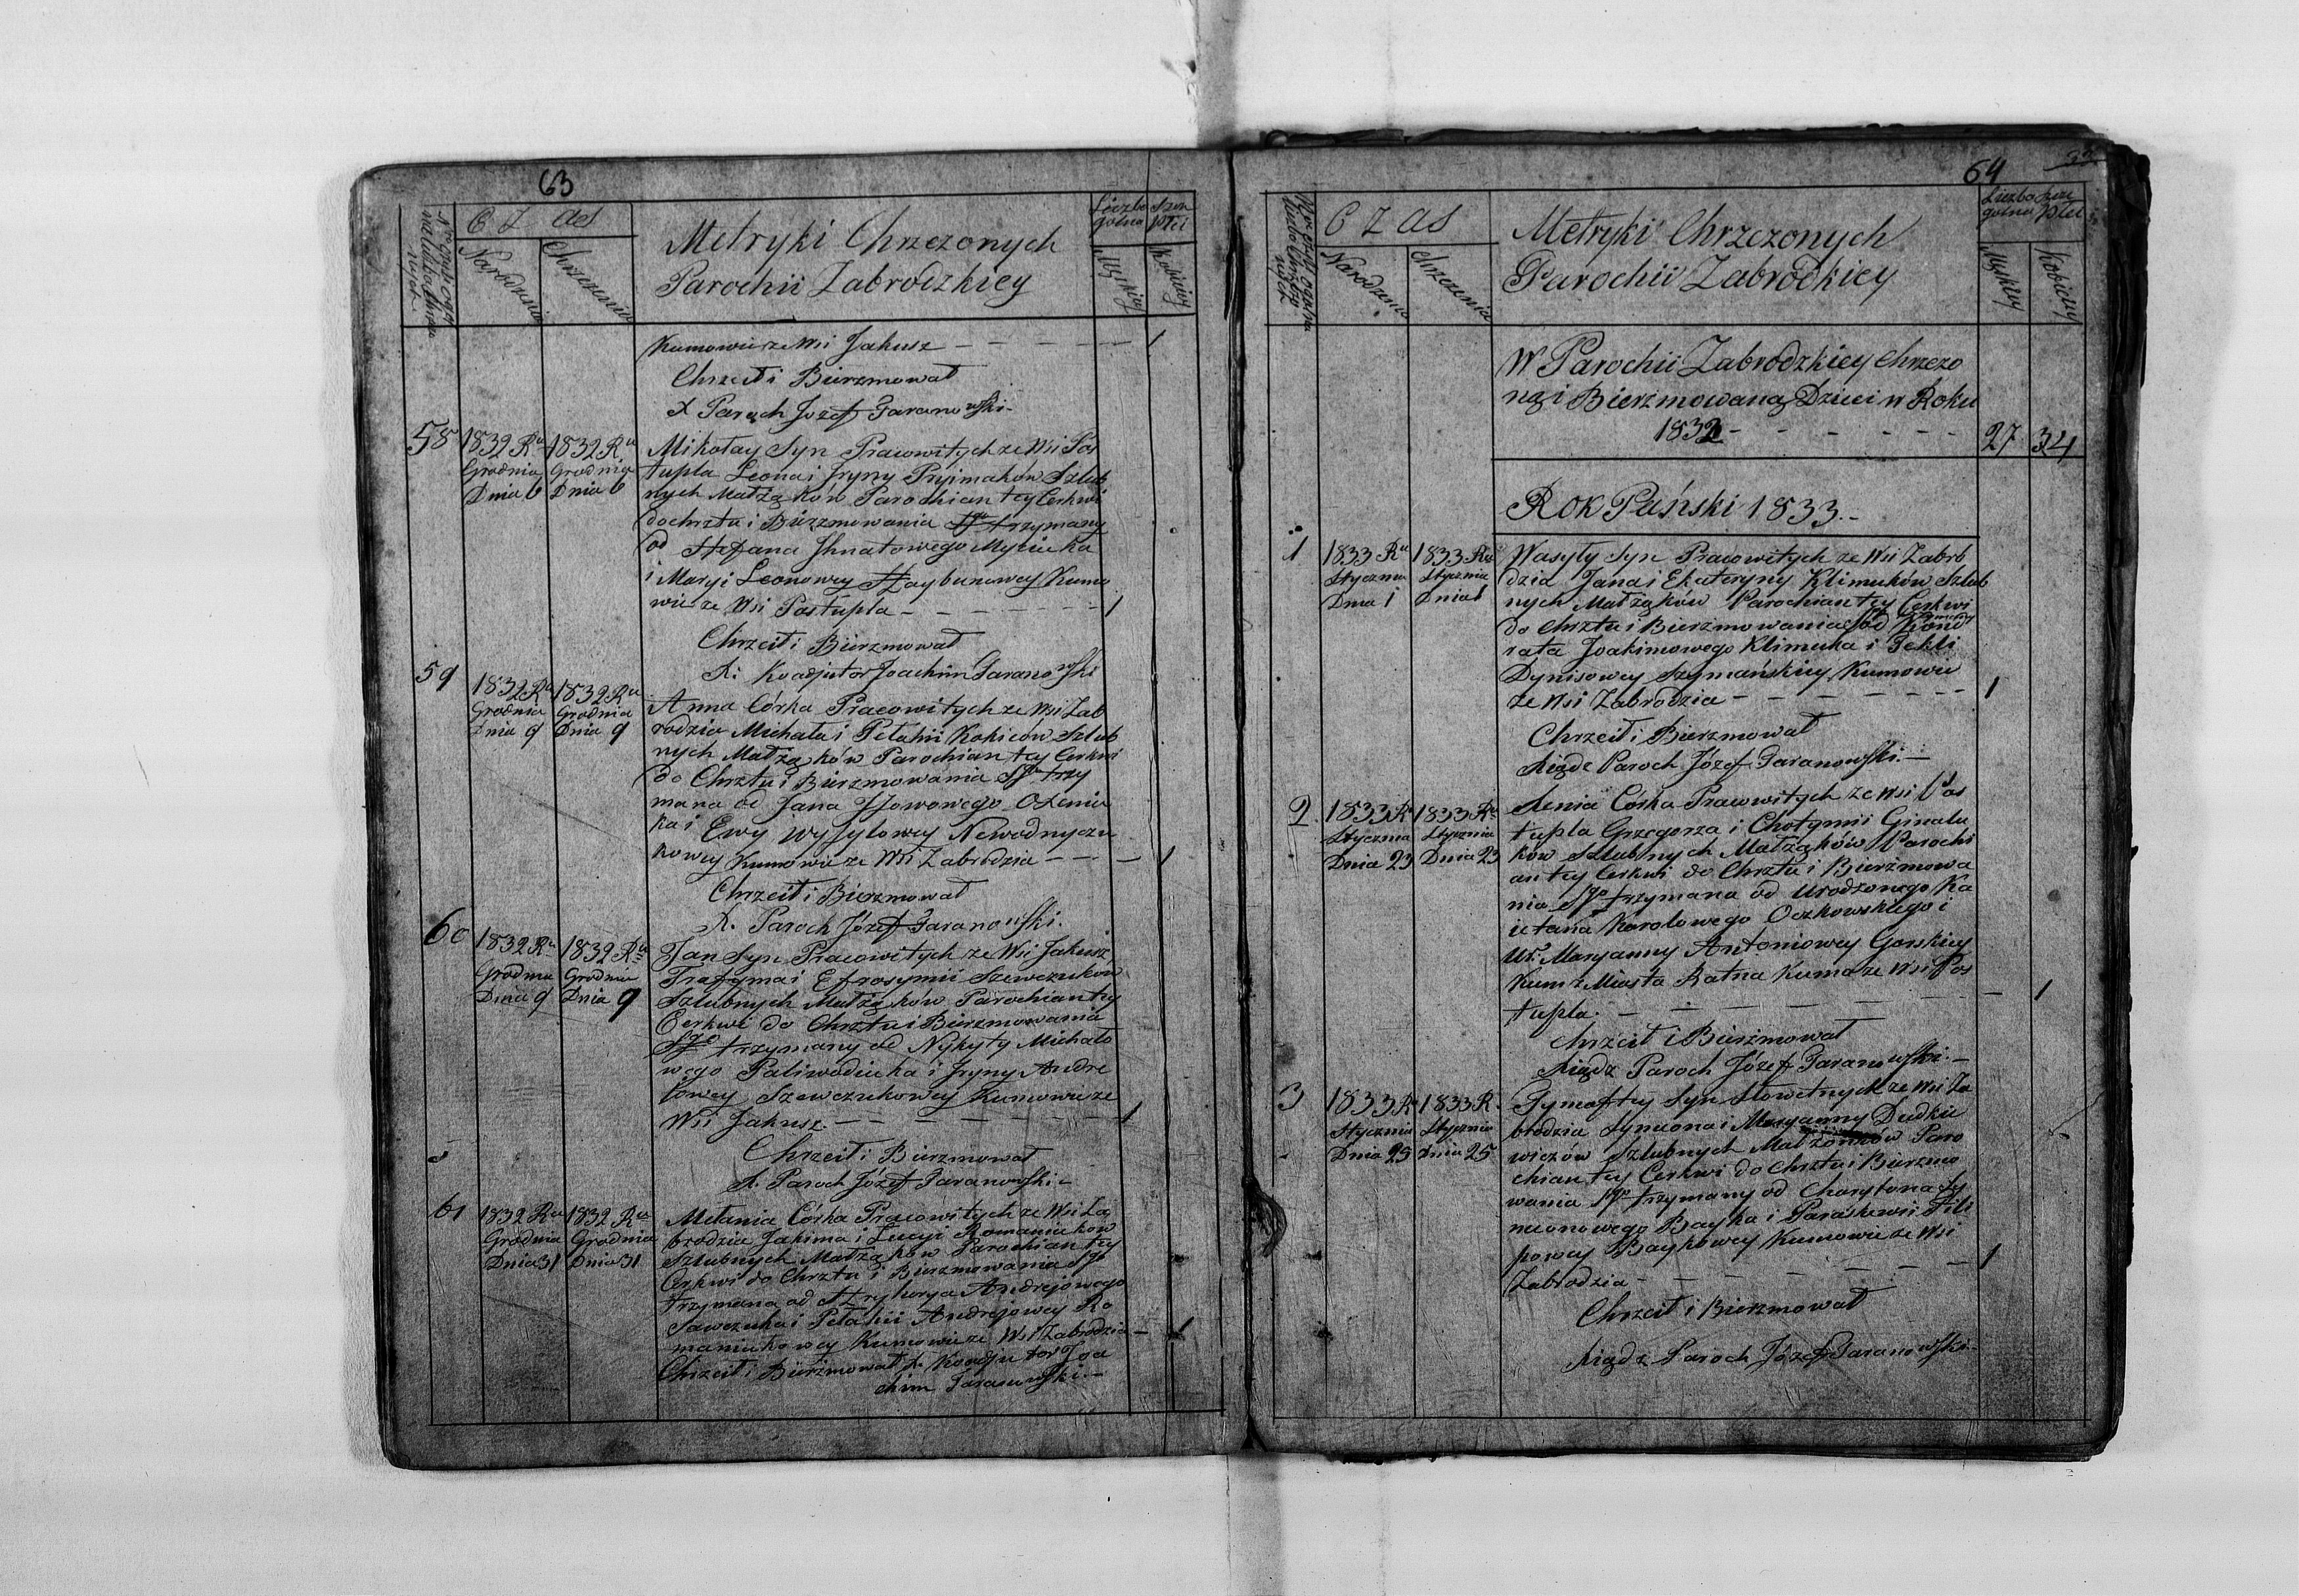 63
Czas
Narodzenia
Chrzczenia
Metryki Chrzczonych
Parochii Zabrodzkiey
Liczba szcze
gólna Płci
Męskiey
Kobiecey
Kumowie ze Wsi Jakusz
1
Chrzcił i Bierzmował
X Paroch Jozef Taranowski
58
1832 Ru
Grudnia
Dnia 6
1832 Ru
Grudnia
Dnia 6
Mikołay Syn Pracowitych ze Wsi Pos
tupla Leona i Jryny Pryimaków Szlub
nych Małżąków Parochian tey Cerkwi
do chrztu i Bierzmowania Sgo trzymany
od Stefana Jhnatowego
i Maryi Leonowey Kumo
wie ze Wsi Postupla
1
Chrzcił i Bierzmował
X: Koadjutor Joachim Taranowski
59
1832 Ru
Grudnia
Dnia 9
1832 Ru
Grudnia
Dnia 9
Anna Córka Pracowitych ze Wsi Zab
rodzia Michała i Pełahii Kokiców Szlub
nych Małżąków Parochian tey Cerkwi
do Chrztu i Bierzmowania Sgo trzy
mana od Jana
ka i Ewy Wasylowey Newodnyczu
kowey Kumowie ze Wsi Zabrodzia
1
Chrzcił i Bierzmował
X. Paroch Józef Taranowski.
60
1832 Ru
Grudnia
Dnia 9
1832 Ru
Grudnia
Dnia 9
Jan Syn Pracowitych ze Wsi Jakusz
Trafyma i Efrosymii Szewczuków
Szlubnych Małżąków Parochian tey
Cerkwi do Chrztu i Bierzmowania
Sgo trzymany od Nykyty Michało
wego Paliwodiuka i Jryny Andre
iowey Szewczukowey Kumowie ze
Wsi Jakusz.
1
Chrzcił i Bierzmował
X. Paroch Józef Taranowski
61
1832 Ru
Grudnia
Dnia 31
1832 Ru
Grudnia
Dnia 31
Mełania Córka Pracowitych ze Wsi Za
brodzia Jakima i Łucyi Romaniuków
Szlubnych Małżąków Parochian tey
Cerkwi do Chrztu i Bierzmowania Sgo
trzymana od Hryhorya Andrejowego
Sawczuka i Pełahii Andrejowey Ro
maniukowey Kumowie ze Wsi Zabrodzia
1
Chrzcił i Bierzmował X. Koadjutor Joa
chim Taranowski
64
Czas
Narodzenia
Chrzczenia
Metryki Chrzczonych
Parochii Zabrodkiey
Liczba szcze
gólna Płci
Męskiey
Kobiecey
W Parochii Zabrodzkiey Chrzczo
no i Bierzmowaną Dzieci w Roku
1832
27
34
Rok Pański 1833.
1
1833 Ru
Stycznia
Dnia 1
1833 Ru
Stycznia
Dnia 1
Wasyly Syn Pracowitych ze Wsi Zabro
dzia Jana i Ekateryny Klimuków Szlub
nych Małżąków Parochian tey Cerkwi
do Chrztu i Bierzmowania Sgo trzymany od Kond
rata Joakimowego Klimuka i Tekli
Dynisowey Szymańskiey Kumowie
ze Wsi Zabrodzia
1
Chrzcił i Bierzmował
Xiądz Paroch Józef Taranowski.
2
1833 Ru
Stycznia
Dnia 23
1833 Ru
Stycznia
Dnia 23
Xenia Córka Pracowitych ze Wsi Pos
tupla Grzegorza i Chotymii Ginalu
ków Szlubnych Małżąków Parochi
an tey Cerkwi do Chrztu i Bierżmowa
nia Sgo trzymana od Urodzonego Ka
ietana Karolowego Oczkowskiego i
Ur. Maryanny Antoniowey Gorskiey
Kum z Miasta Ratna Kuma ze Wsi Pos
tupla.
1
Chrzcił i Bierżmował
Xiądz Paroch Józef Taranowski.
3
1833 Ru
Stycznia
Dnia 25
1833 R.
Stycznia
Dnia 25
Tymoftey Syn Słowetnych ze Wsi Za
brodzia Symeona i Maryanny Dudkie
wiczów Szlubnych Małżonków Paro
chian tey Cerkwi do Chrztu i Bierzmo
wania Sgo trzymany od Charytona Sy
meonowego Bayka i Paraskewii Fili
powey Baykowey Kumowie ze Wsi
Zabrodzia
1
Chrzcił i Bierzmował
Xiądz Paroch Józef Taranowski